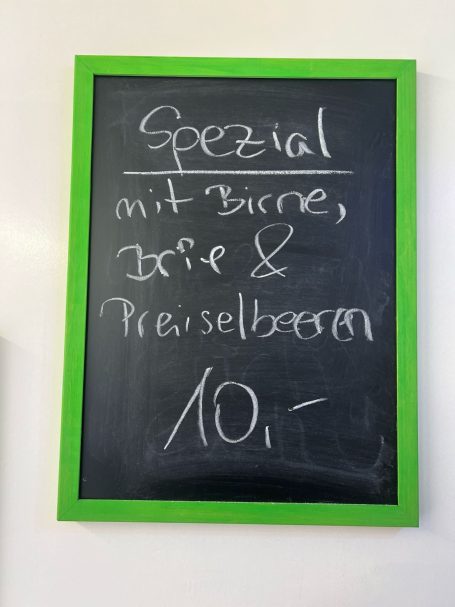 Spezial
mit Birne,
Brie &
Preiselbeeren
10,-